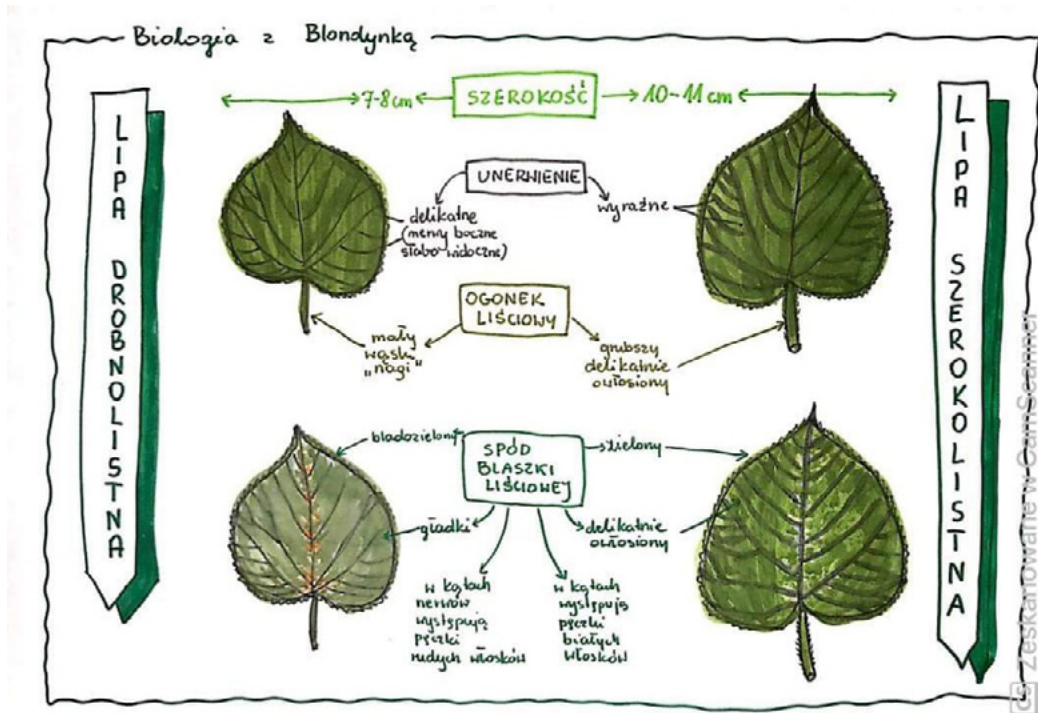 Biologia z Blondynką
LIPA DROBNOLISTNA
7-8 cm
SZEROKOŚĆ
10-11 cm
LIPA SZEROKOLISTNA
UNERWIENIE
delikatne
(nerwy boczne
słabo widoczne)
wyraźne
OGONEK
LIŚCIOWY
mały
wąski
„nagi”
grubszy
delikatnie
owłosiony
bladozielony
SPÓD
BLASZKI
LIŚCIOWEJ
zielony
gładki
delikatnie
owłosiony
w kątach
nerwów
występują
pęczki
rudych włosków
w kątach
występują
pęczki
białych
włosków
CS Zeskanowane w CamScanner